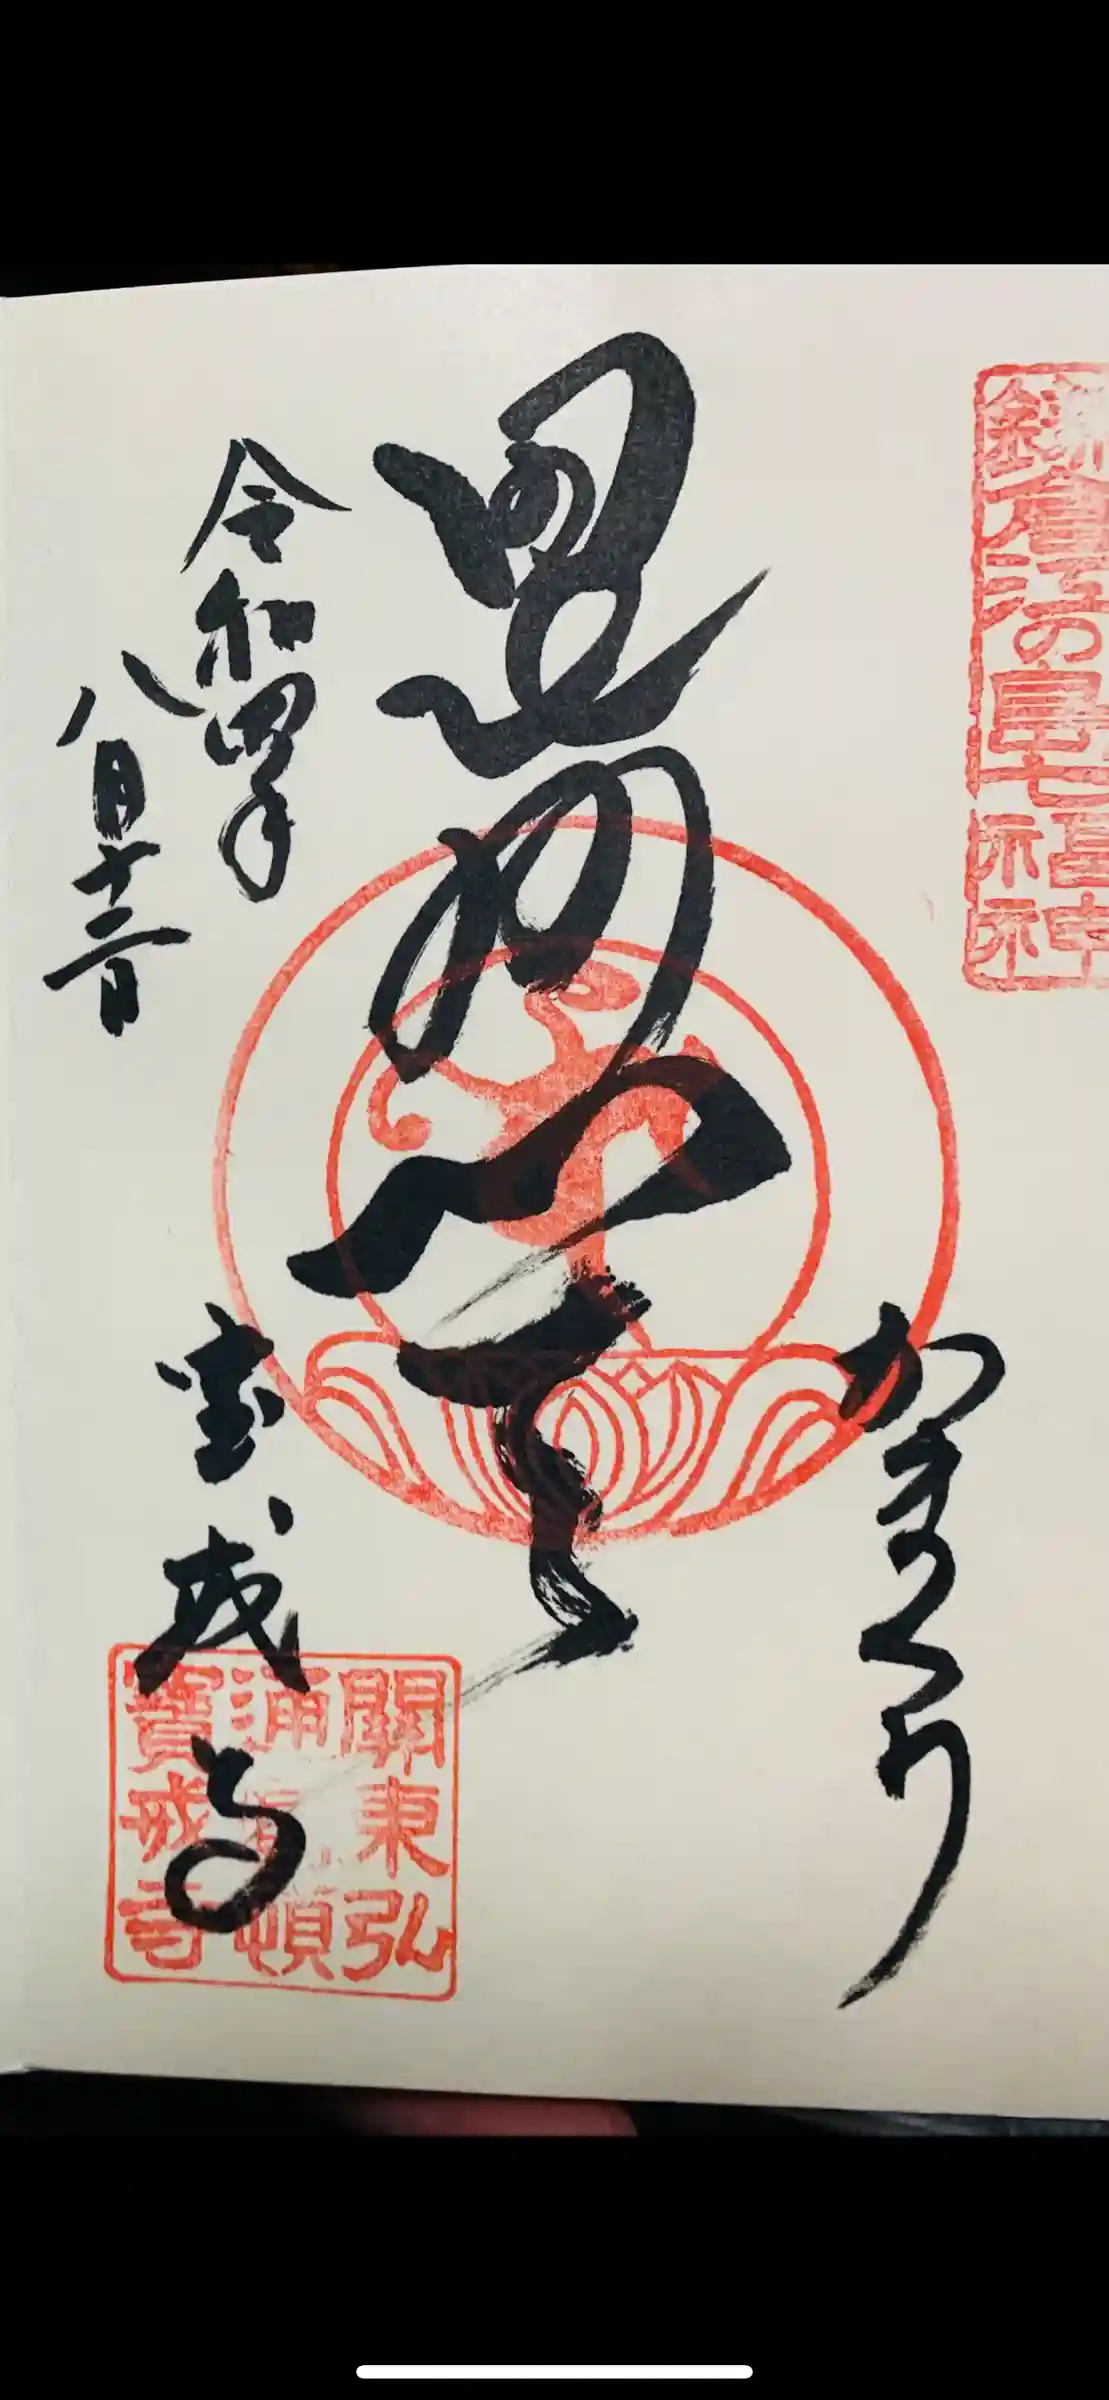 鎌倉江の島七福神
かまくら
毘沙門天
令和四年
八月十二日
宝戒寺
關東弘
寳戒寺